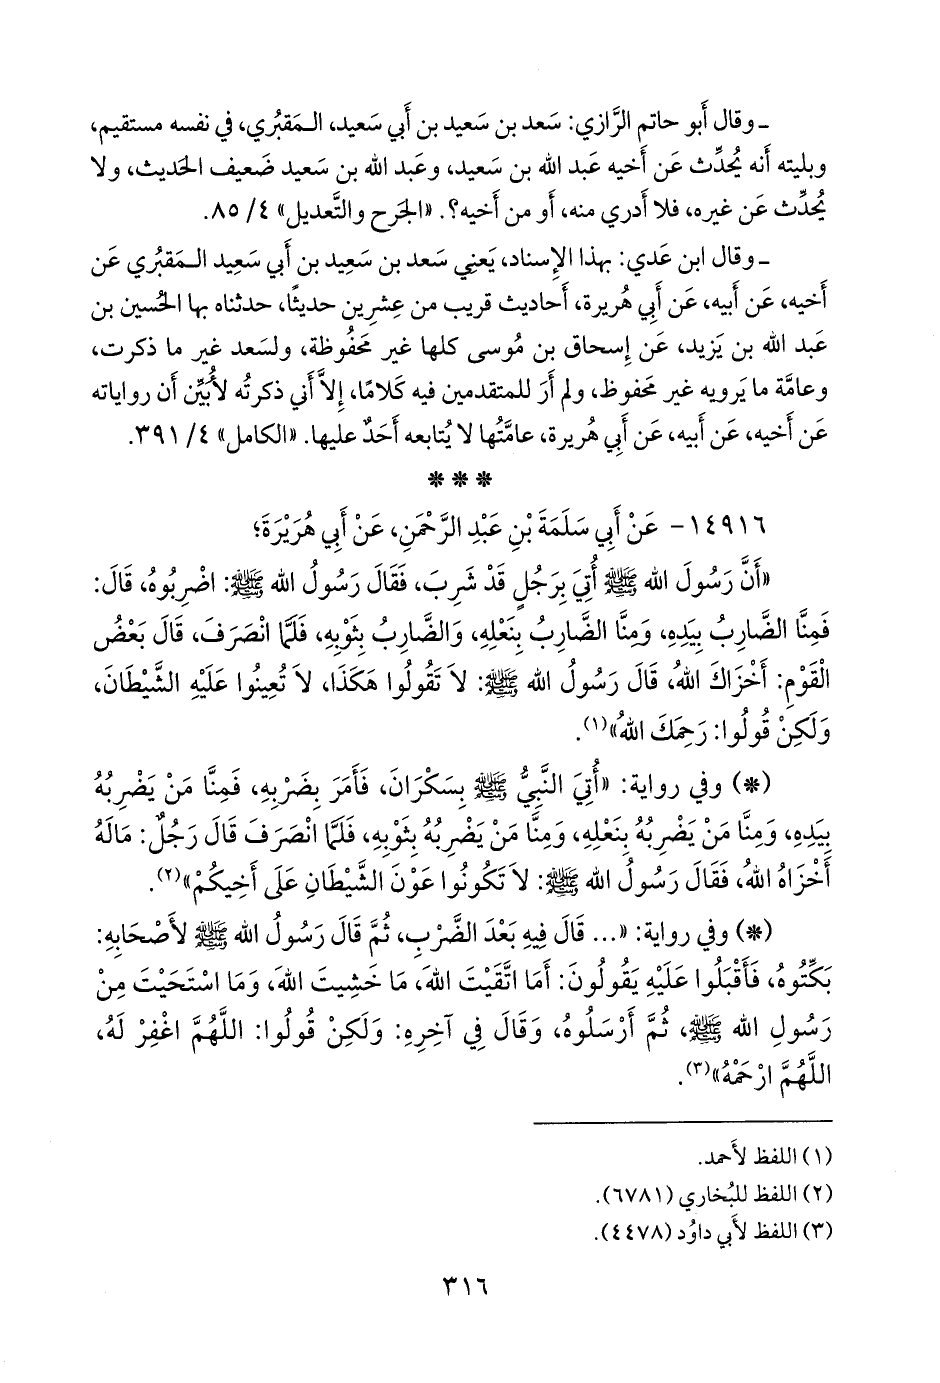 ـ وقال أَبو حاتم الرَّازي: سَعد بن سَعيد بن أَبي سَعيد، الـمَقبُري، في نفسه مستقيم،
وبليته أنه يُحدِّث عَن أَخيه عَبد الله بن سَعيد، وعَبد الله بن سَعيد ضَعيف الحَديث، ولا
يُحدِّث عَن غيره، فلا أَدري منه، أَو من أَخيه؟. «الجَرح والتَّعديل» ٤/ ٨٥.
ـ وقال ابن عَدي: بهذا الإِسناد، يَعنِي سَعد بن سَعِيد بن أَبي سَعِيد الـمَقبُري عَن
أَخيه، عَن أَبيه، عَن أَبي هُريرة، أَحاديث قريب من عِشرِين حديثًا، حدثناه بها الحُسين بن
عَبد الله بن يَزيد، عَن إِسحاق بن مُوسى كلها غير مَحفُوظة، ولسَعد غير ما ذكرت،
وعامَّة ما يَرويه غير مَحفوظ، ولم أَرَ للمتقدمين فيه كَلامًا، إِلاَّ أَني ذكرتُه لأُبَيِّن أَن رواياته
عَن أَخيه، عَن أَبيه، عَن أَبي هُريرة، عامَّتُها لا يُتابعه أَحَدٌ عليها. «الكامل» ٤/ ٣٩١.
* * *
١٤٩١٦- عَنْ أَبِي سَلَمَةَ بْنِ عَبْدِ الرَّحْمَنِ، عَنْ أَبِي هُرَيْرَةَ؛
«أَنَّ رَسُولَ الله ﷺ أُتِيَ بِرَجُلٍ قَدْ شَرِبَ، فَقَالَ رَسُولُ الله ﷺ: اضْرِبُوهُ، قَالَ:
فَمِنَّا الضَّارِبُ بِيَدِهِ، وَمِنَّا الضَّارِبُ بِنَعْلِهِ، وَالضَّارِبُ بِثَوْبِهِ، فَلَمَّا انْصَرَفَ، قَالَ بَعْضُ
الْقَوْمِ: أَخْزَاكَ اللهُ، قَالَ رَسُولُ الله ﷺ: لاَ تَقُولُوا هَكَذَا، لاَ تُعِينُوا عَلَيْهِ الشَّيْطَانَ،
وَلَكِنْ قُولُوا: رَحِمَكَ اللهُ»(١).
(*) وفي رواية: «أُتِيَ النَّبِيُّ ﷺ بِسَكْرَانَ، فَأَمَرَ بِضَرْبِهِ، فَمِنَّا مَنْ يَضْرِبُهُ
بِيَدِهِ، وَمِنَّا مَنْ يَضْرِبُهُ بِنَعْلِهِ، وَمِنَّا مَنْ يَضْرِبُهُ بِثَوْبِهِ، فَلَمَّا انْصَرَفَ قَالَ رَجُلٌ: مَالَهُ
أَخْزَاهُ اللهُ، فَقَالَ رَسُولُ الله ﷺ: لاَ تَكُونُوا عَوْنَ الشَّيْطَانِ عَلَى أَخِيكُمْ»(٢).
(*) وفي رواية: «... قَالَ فِيهِ بَعْدَ الضَّرْبِ، ثُمَّ قَالَ رَسُولُ الله ﷺ لأَصْحَابِهِ:
بَكِّتُوهُ، فَأَقْبَلُوا عَلَيْهِ يَقُولُونَ: أَمَا اتَّقَيْتَ اللهَ، مَا خَشِيتَ اللهَ، وَمَا اسْتَحَيْتَ مِنْ
رَسُولِ الله ﷺ، ثُمَّ أَرْسَلُوهُ، وَقَالَ فِي آخِرِهِ: وَلَكِنْ قُولُوا: اللَّهُمَّ اغْفِرْ لَهُ،
اللَّهُمَّ ارْحَمْهُ»(٣).
(١) اللفظ لأَحمد.
(٢) اللفظ للبُخاري (٦٧٨١).
(٣) اللفظ لأَبي داوُد (٤٤٧٨).
٣١٦